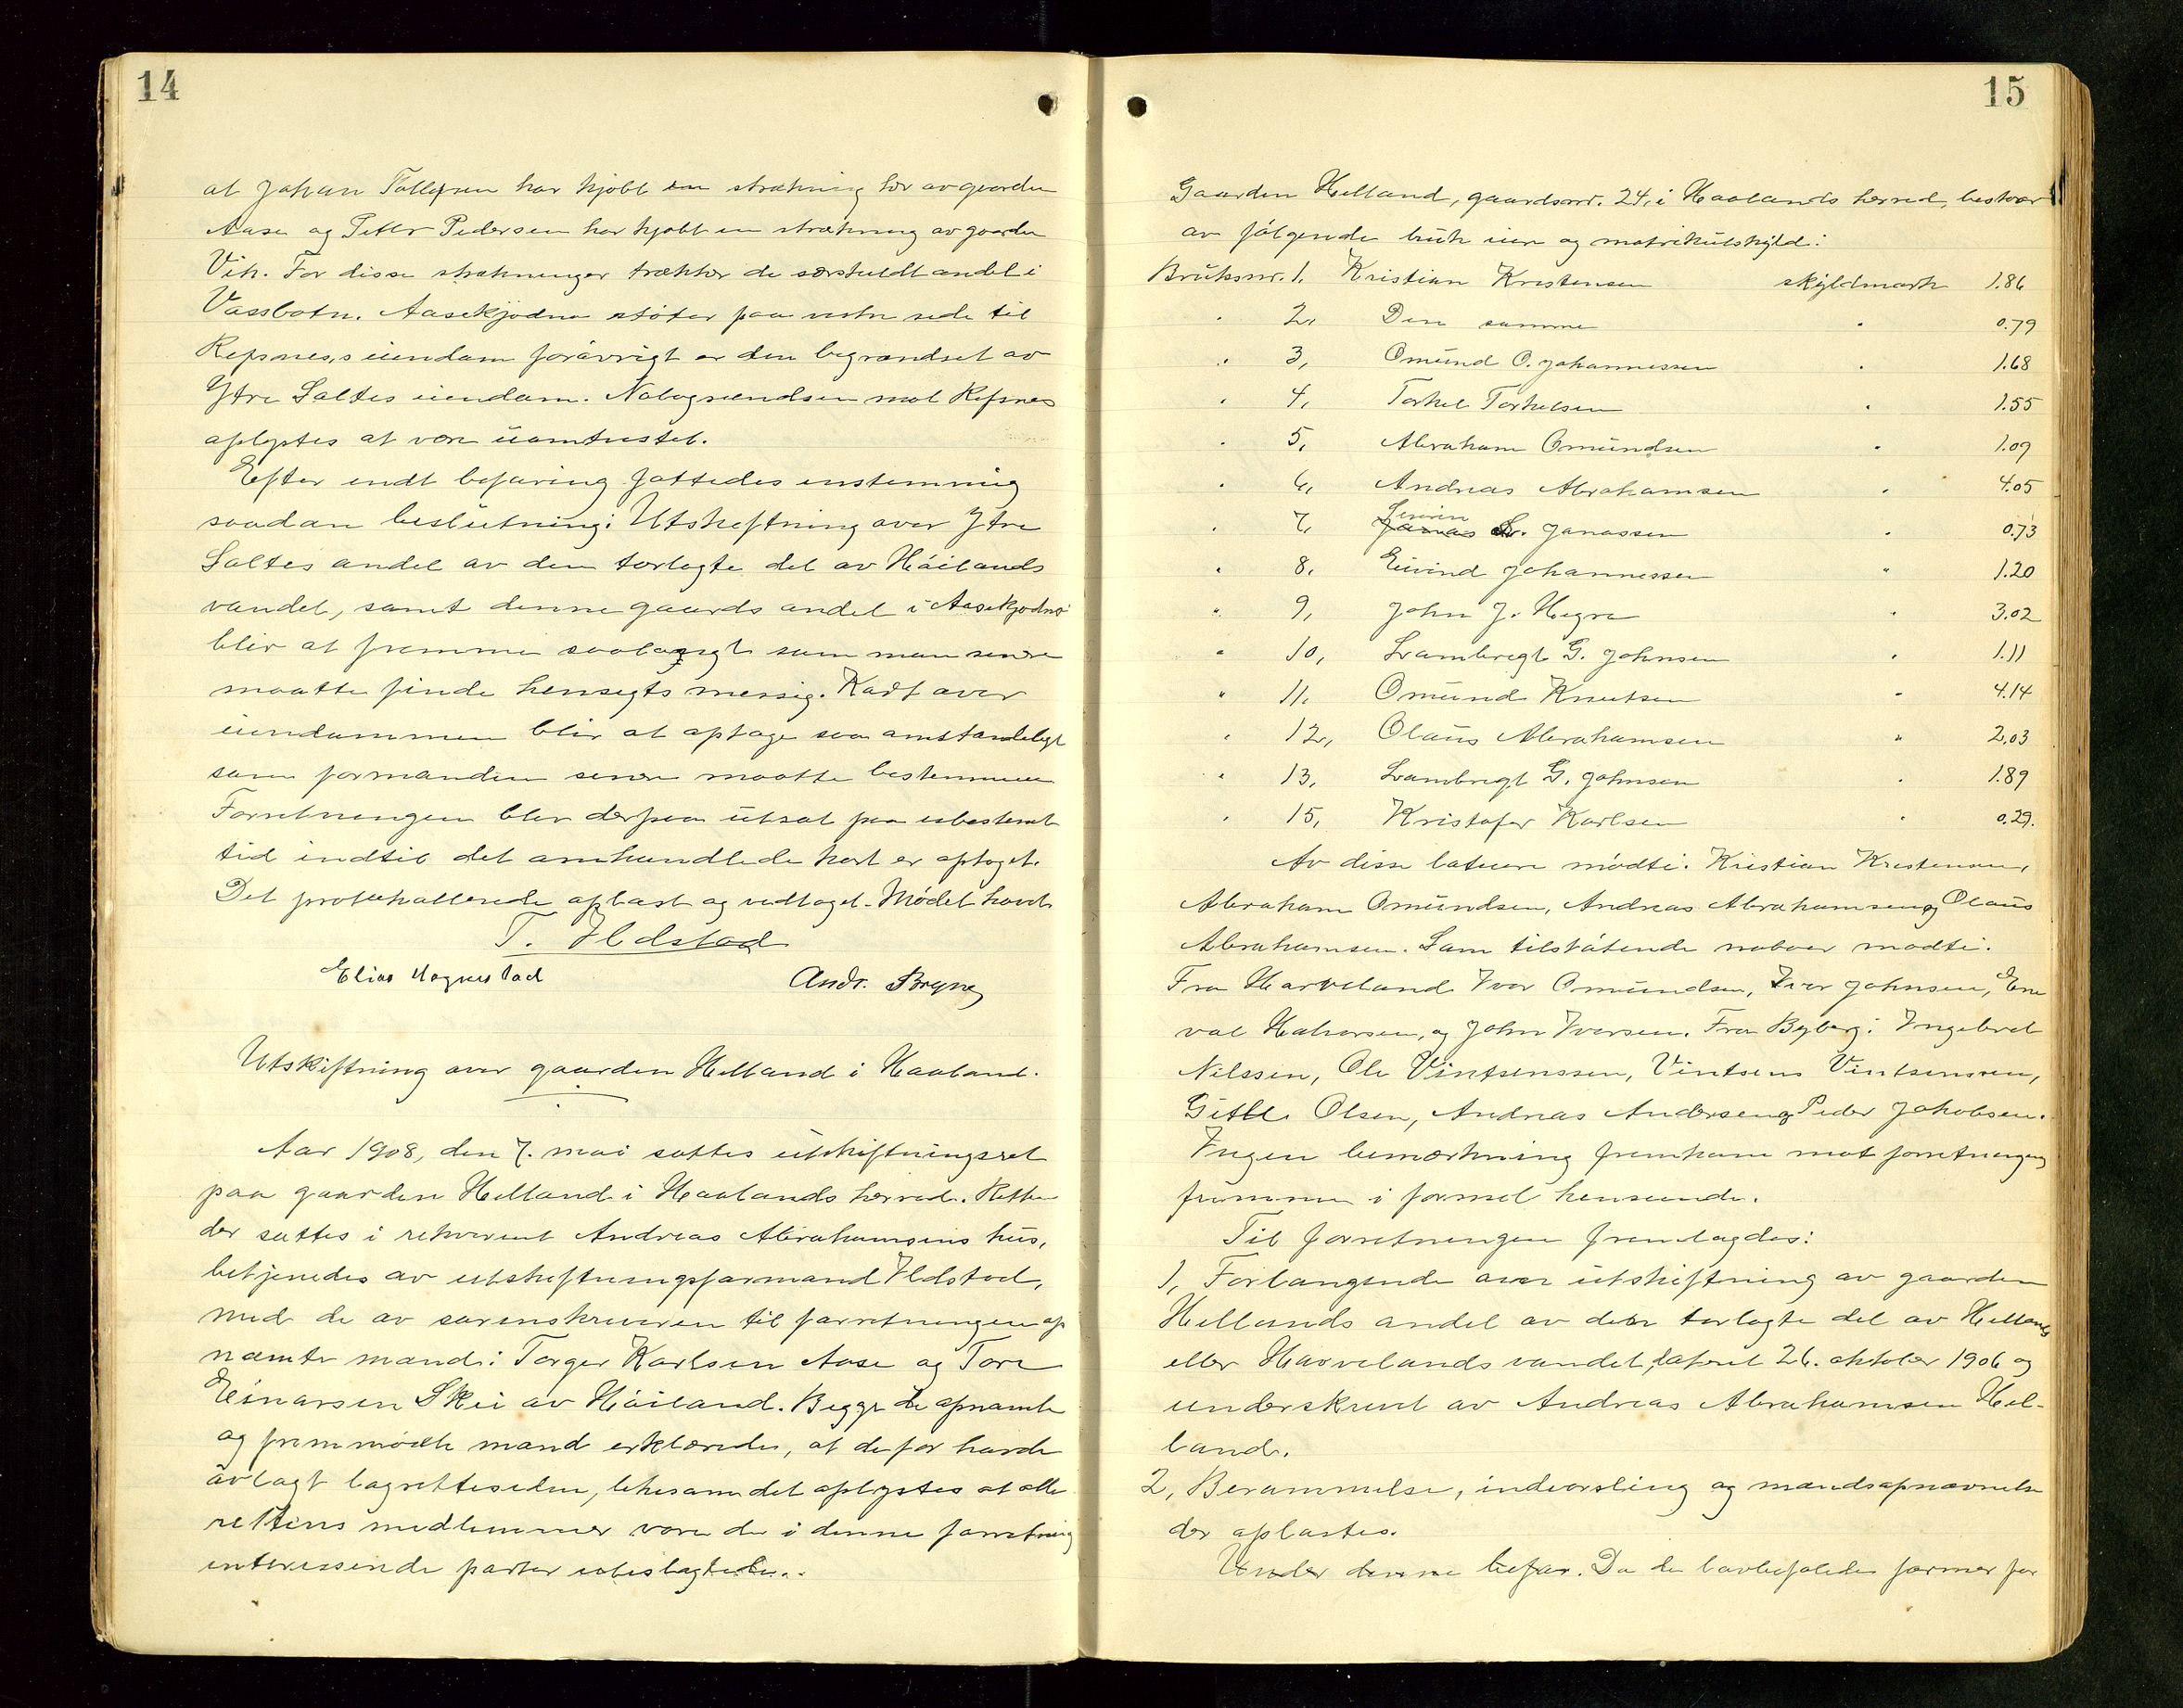 14
at Johan Tollefsen har kjøbt en strækning her av gaarden
Aase og Peder Pedersen har kjøbt en strækning av gaarden
Vik. For disse strækninger trækker de særskildt andel i
Vassbotn. Aasekjødne støter paa vestre side til
Refsnes,s eiendom forøvrigt er den begrændset av
Ytre Saltes eiendom. Nabogrændsen mot Refsnes
oplystes at være uomtvistet.
Efter endt befaring fattedes enstemmig
saadan beslutning: Utskiftning over Ytre
Saltes andel av den tørlagte del av Høilands
vandet, samt denne gaards andel i Aasekjødne
blir at fremme saalangt som man senere
maatte finde hensigtsmessig. Kart over
eiendommen blir at optage saa omstændeligt
som formanden senere maatte bestemme
Forretningen blev derpaa utsat paa ubestemt
tid indtil det omhandlede kart er optaget.
Det protokollerede oplæst og vedtaget. Mødet hævet
T. Ildstad
Elias Hognestad Andr. Bryne
Utskiftning over gaarden Helland i Haaland.
Aar 1908, den 7. mai sattes utskiftningsret
paa gaarden Helland i Haalands herred. Retten
der sattes i rekvirent Andreas Abrahamsens hus,
betjenedes av utskiftningsformand Ildstad,
med de av sorenskriveren til forretningen op
nævnte mænd: Torger Karlsen Aase og Tore
Einarsen Skei av Høiland. Begge de opnævnte
og fremmødte mænd erklærede, at de før havde
avlagt lagretteseden, likesom det oplystes at alle
rettens medlemmer vare de i denne forretning
interessende parter ubeslægtede.
15
Gaarden Helland, gaardsnr. 24, i Haalands herred, bestaar
av følgende bruk eiere og matrikulskyld:
Bruksnr. 1. Kristian Kristensen skyldmark 1.86
" 2, Den samme " 0.79
" 3, Omund O. Johannessen " 1.68
" 4, Torkel Torkelsen " 1.55
" 5, Abraham Omundsen " 1.09
" 6, Andreas Abrahamsen " 4.05
" 7, Jonas Sr. Jonassen " 0.73
" 8, Eivind Johannessen " 1.20
" 9, John J. Hegre " 3.02
" 10, Lambregt G. Johnsen " 1.11
" 11, Omund Knutsen " 4.14
" 12, Olaus Abrahamsen " 2,03
" 13, Lambregt G. Johnsen " 1.89
" 15, Kristofer Karlsen " 0.29.
Av disse lateiere mødte: Kristian Kristensen,
Abraham Omundsen, Andreas Abrahamsen og Olaus
Abrahamsen. Som tilstøtende naboer mødte:
Fra Harveland Iver Omundsen, Iver Johnsen, Ene
val Halvorsen, og John Iversen. Fra Byberg: Ingebret
Nilssen, Ole Vintsenssen, Vintsens Vintsenssen,
Gitle Olsen, Andreas Andersen og Peder Jakobsen.
Ingen bemærkning fremkom mot forretningens
fremme i formel henseende.
Til forretningen fremlagdes:
1, Forlangende over utskiftning av gaarden
Hellands andel av den tørlagte del av Hellands
eller Harvelandsvandet, dateret 26. oktober 1906 og
underskrevet av Andreas Abrahamsen Hel-
land.
2, Berammelse, indvarsling og mændsopnævnelse
der oplæstes.
Under denne befar. Da de lovbefalede former for